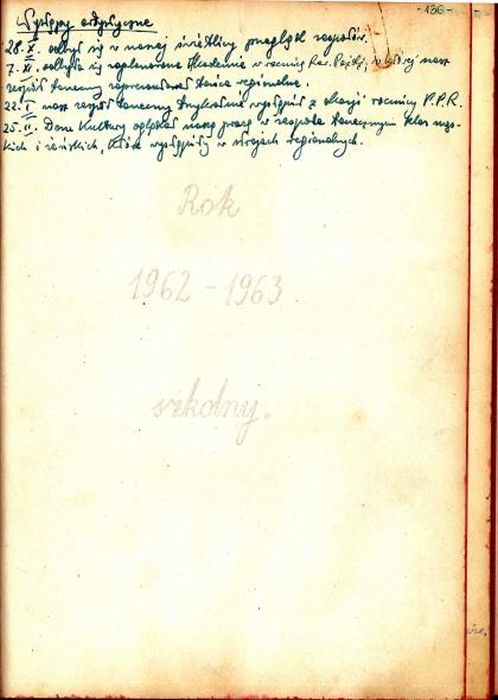 -136-
Występy artystyczne
28.X. odbył się w naszej świetlicy przegląd zespołów.
7.XI. odbyła się Akademia w rocznicę Rew. Paźdz., w której nasz
zespół taneczny reprezentował tańce regionalne.
22.I nasz zespół taneczny wystąpił z okazji rocznicy P.P.R.
25.II. Dom Kultury oglądał naszą pracę w zespole tanecznym klas męs-
kich i żeńskich, które wystąpiły w strojach regionalnych.
Rok
1962-1963
szkolny.